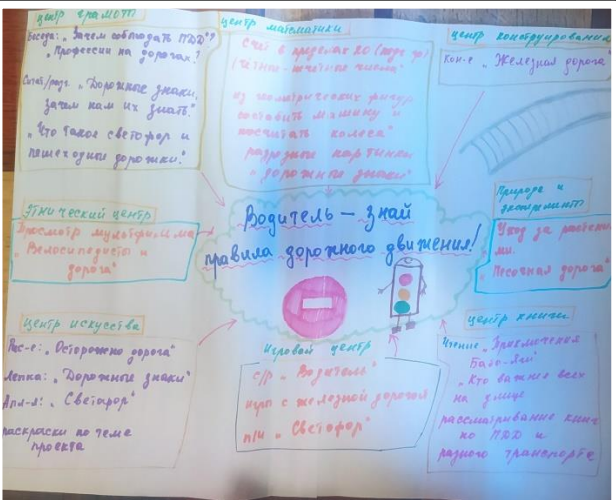 центр грамоты
Беседа: „Зачем соблюдать ПДД"?
„Профессии на дорогах."
„Дорожные знаки,
зачем нам их знать."
„Что такое светофор и
пешеходные дорожки."
центр математики
Счёт в пределах
(чётные-нечётные числа)
из геометрических фигур
составить машину и
посчитать колёса"
разрезные картинки
„дорожные знаки"
центр конструирования
Кон-е „Железная дорога"
Этнический центр
Просмотр мультфильма
„Велосипедисты и
дорога"
Водитель – знай
правила дорожного движения!
Природа и
эксперименты
Уход за растени
ями.
„Песочная дорога"
центр искусства
Рис-е: „Осторожно дорога"
Лепка: „Дорожные знаки"
Апл-я: „Светофор"
раскраски по теме
проекта
Игровой центр
с/р „Водитель"
игры с железной дорогой
п/и „Светофор"
центр книги
Чтение „Приключения
Бабы-Яги"
„Кто важнее всех
на улице
рассматривание книг
по ПДД и
разного транспорта